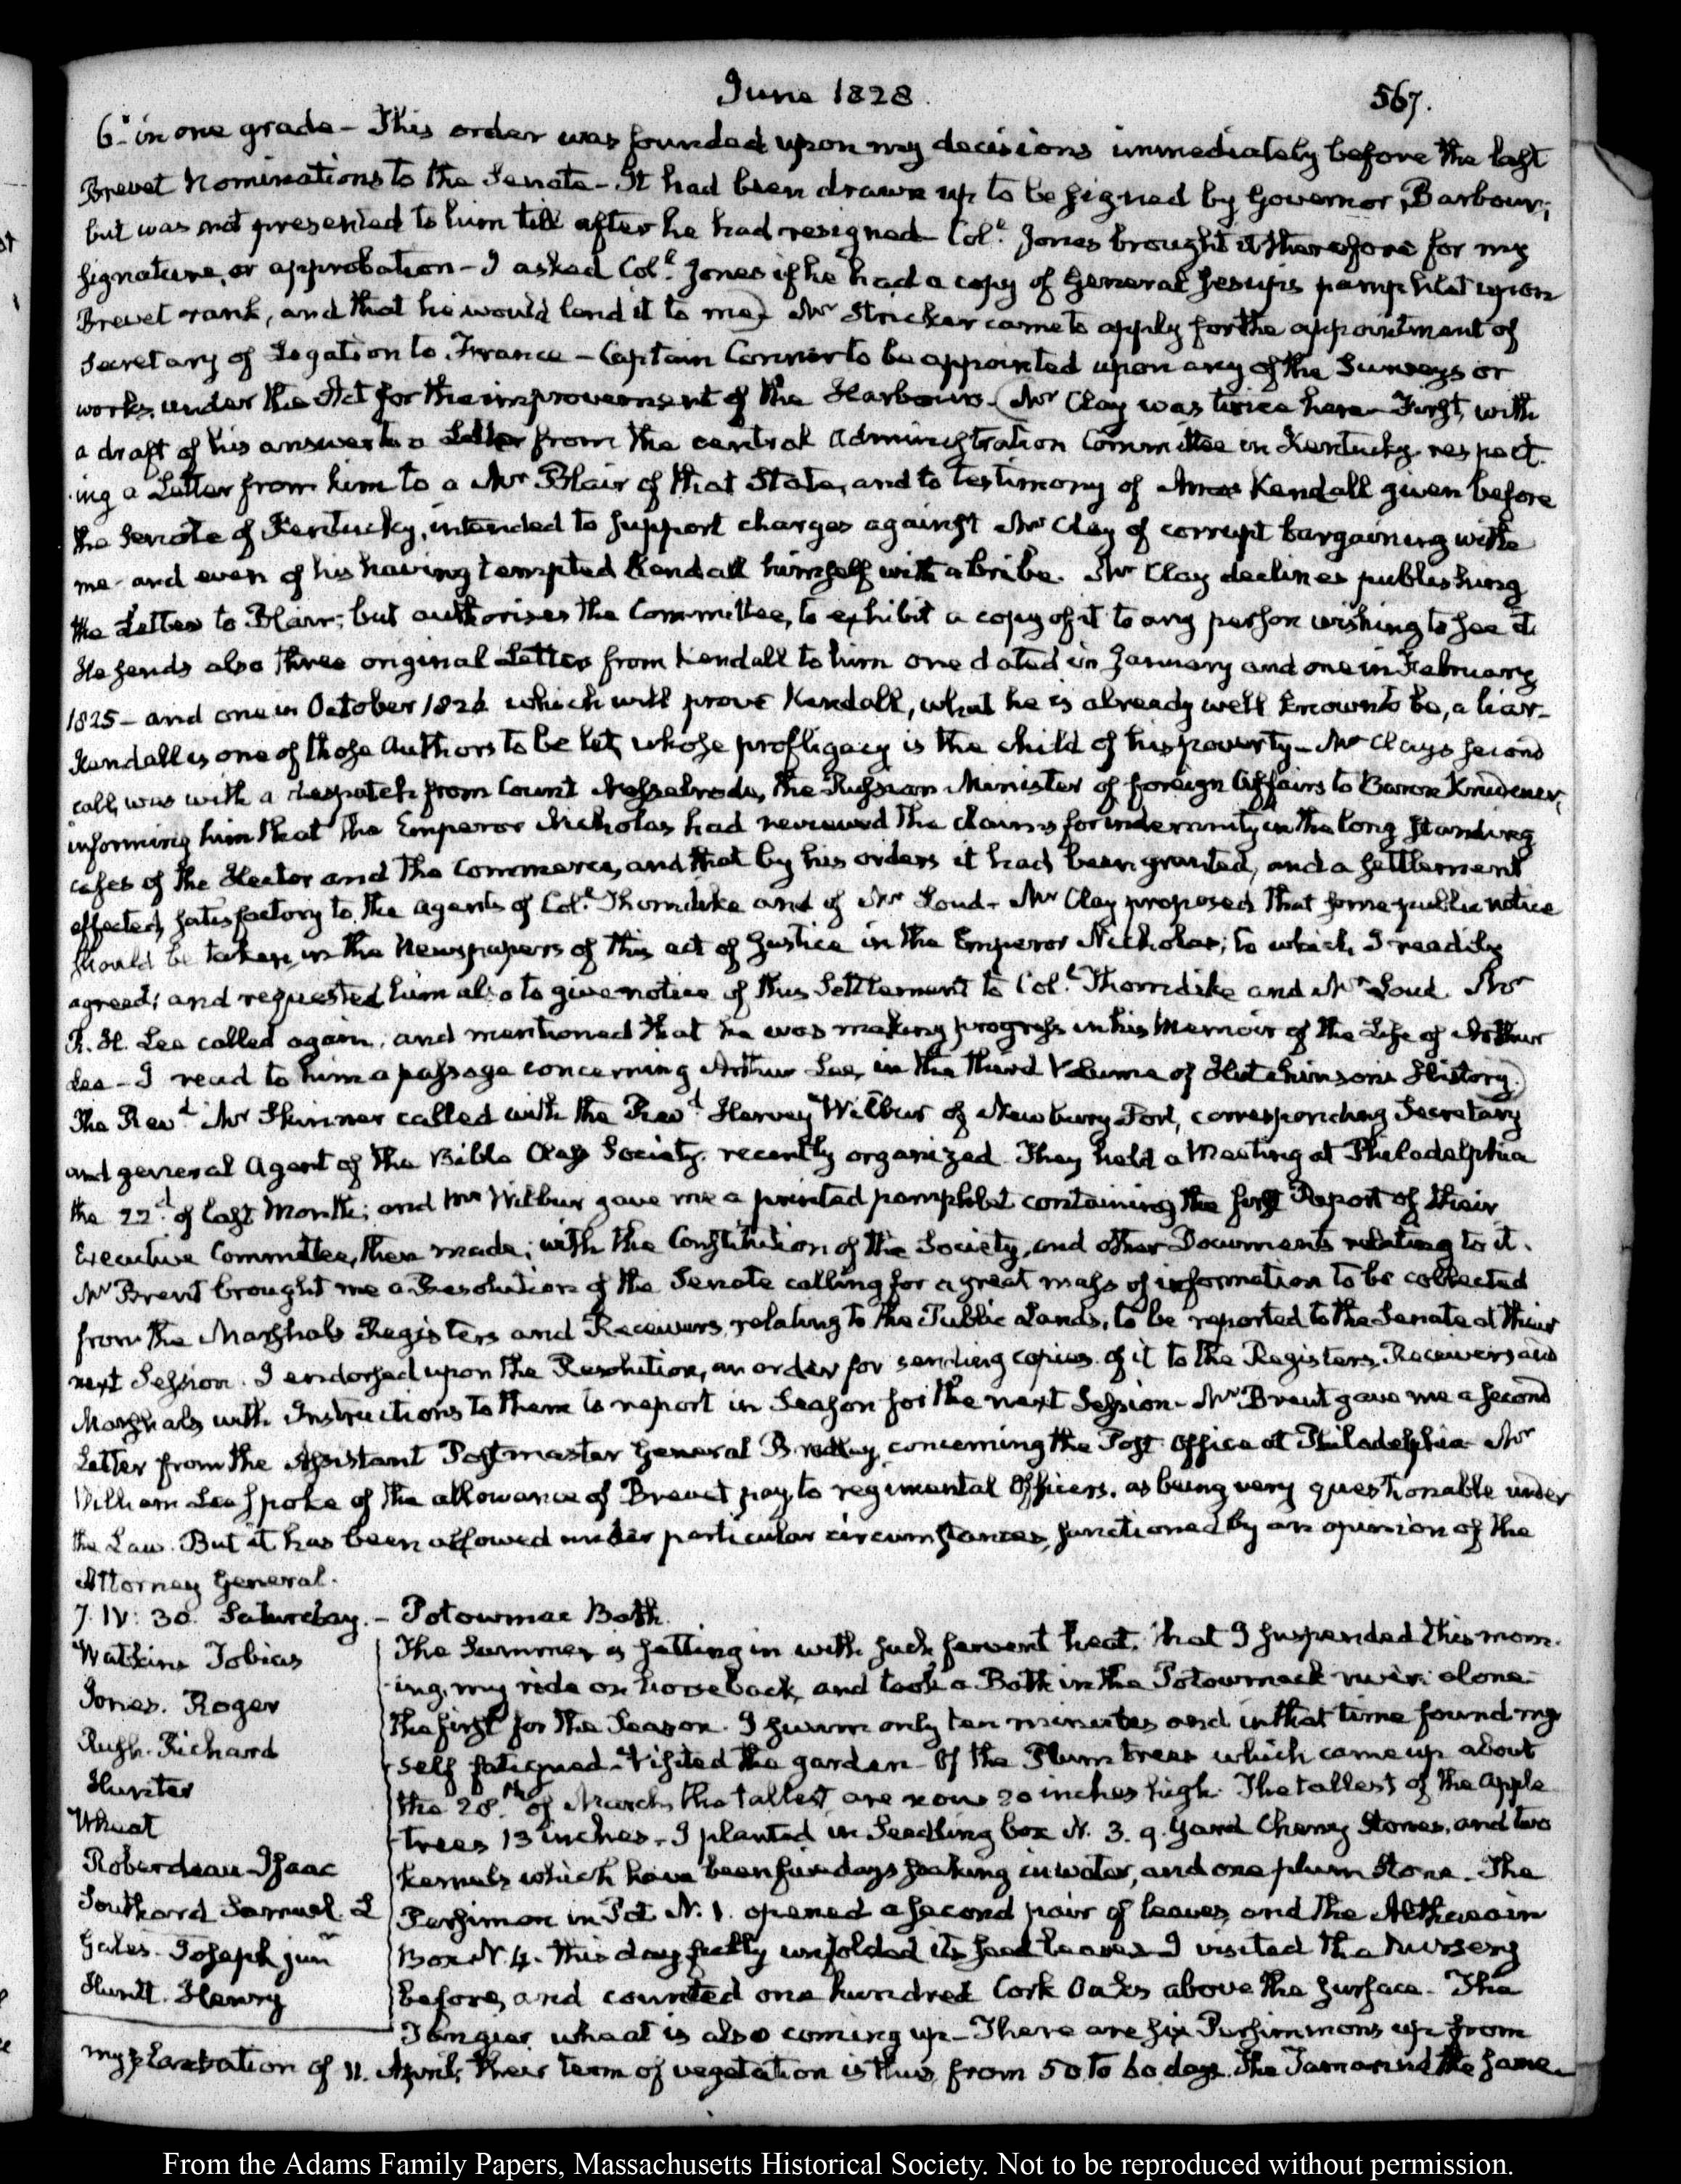 June 1828.
567.
6. in one grade – This order was founded upon my decisions immediately before the last
Brevet Nominations to the Senate – It had been drawn up to be signed by Governor Barbour;
but was not presented to him till after he had resigned – Col.l Jones brought it therefore for my
signature, or approbation – I asked Col.l Jones if he had a copy of General Jesup's pamphlet upon
Brevet rank, and that he would lend it to me) Mr Stricker came to apply for the appointment of
Secretary of Legation to France – Captain Connor to be appointed upon any of the Surveys or
works, under the Act for the improvement of the Harbours. (Mr Clay was twice here – First, with
a draft of his answer to a Letter from the central administration Committee in Kentucky respect-
-ing a Letter from him to a Mr Blair of that State, and to testimony of Amos Kendall given before
the Senate of Kentucky, intended to support charges against Mr Clay of corrupt bargaining with
me – and even of his having tempted Kendall himself with a bribe. Mr Clay declines publishing
the Letter to Blair; but authorises the Committee, to exhibit a copy of it to any person wishing to see it
He sends also three original Letters from Kendall to him one dated in January and one in February
1825 – and one in October 1826 which will prove Kendall, what he is already well known to be, a liar –
Kendall is one of those Authors to be let, whose profligacy is the child of his poverty – Mr Clay's second
call, was with a despatch from Count Nesselrode, the Russian Minister of foreign Affairs to Baron Krudener,
informing him that the Emperor Nicholas had reviewed the claims for indemnity in the long standing
cases of the Hector and the Commerce, and that by his orders it had been granted, and a settlement
effected, satisfactory to the agents of Col.l Thorndike and of Mr Loud – Mr Clay proposed that some public notice
should be taken, in the Newspapers of this act of Justice in the Emperor Nicholas; to which I readily
agreed; and requested him also to give notice of this Settlement to Col.l Thorndike and Mr Loud. Mr
R. H. Lee called again, and mentioned that he was making progress in his Memoir of the Life of Arthur
Lee – I read to him a passage concerning Arthur Lee, in the third Volume of Hutchinson's History.)
The Revd. Mr Skinner called with the Revd. Harvey Wilbur of Newbury Port, corresponding Secretary
and general Agent of the Bible Class Society, recently organized. They held a Meeting at Philadelphia
the 22d. of last Month; and Mr Wilbur gave me a printed pamphlet containing the first Report of their
Executive Committee, then made; with the Constitution of the Society, and other Documents relating to it.
Mr Brent brought me a Resolution of the Senate calling for a great mass of information to be collected
from the Marshals Registers and Receivers, relating to the Public Lands, to be reported to the Senate at their
next Session. I endorsed upon the Resolution, an order for sending copies of it to the Registers, Receivers and
Marshals with Instructions to them to report in Season for the next Session – Mr Brent gave me a second
Letter from the Assistant Postmaster General Bradley, concerning the Post Office at Philadelphia – Mr
William Lee spoke of the allowance of Brevet pay, to regimental Officers, as being very questionable under
the Law. But it has been allowed under particular circumstances, sanctioned by an opinion of the
Attorney General.
7. IV: 30. Saturday. – Potowmac Bath.
Watkins Tobias
Jones. Roger
Rush. Richard
Hunter
Wheat
Roberdeau Isaac
Southard Samuel. L
Gales. Joseph junr
Huntt. Henry
The Summer is setting in with such fervent heat, that I suspended this morn-
-ing, my ride on horseback, and took a Bath in the Potowmack river: alone –
the first for the Season. I swum only ten minutes and in that time found my
self fatigued – Visited the garden – Of the Plum trees which came up about
the 28.th of March, the tallest are now 20 inches high. The tallest of the apple
trees 13 inches – I planted in Seedling box N. 3. 9. Gard Cherry Stones, and two
kernels which have been five days soaking in water, and one plum Stone – The
Persimon in Pot N. 1. opened a second pair of leaves, and the Althaea in
Box N. 4. this day fully unfolded its seed leaves – I visited the nursery
before, and counted one hundred Cork Oaks above the surface – The
Tangier wheat is also coming up – There are six Persimmons up from
my plantation of 11. April; their term of vegetation is thus from 50 to 60 days. The Tamarind the same –
From the Adams Family Papers, Massachusetts Historical Society. Not to be reproduced without permission.